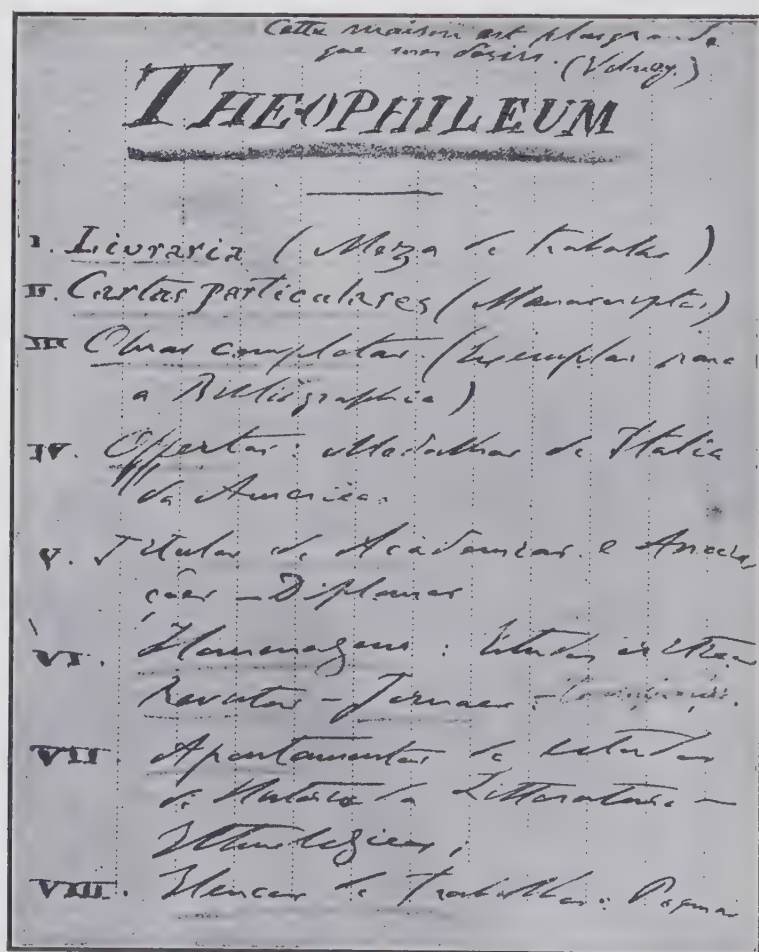 Cette maison est plus grande
que mes désirs. (Volney.)
THEOPHILEUM
I. Livraria (Meza de trabalho)
II. Cartas particulares (Manuscriptos)
III Obras completas. (Exemplar para
a Bibliographia)
IV. Offertas: Medalhas de Italia
da America.
V. Titulos de Academias e Associa,
ções – Diplomas
VI. Homenagens: Estudos criticos
Revistas – Jornaes –
VII. Apontamentos de estudos
de Historia da Litteratura –
Ethnologicos;
VIII. Elencos de Trabalhos: Poemas